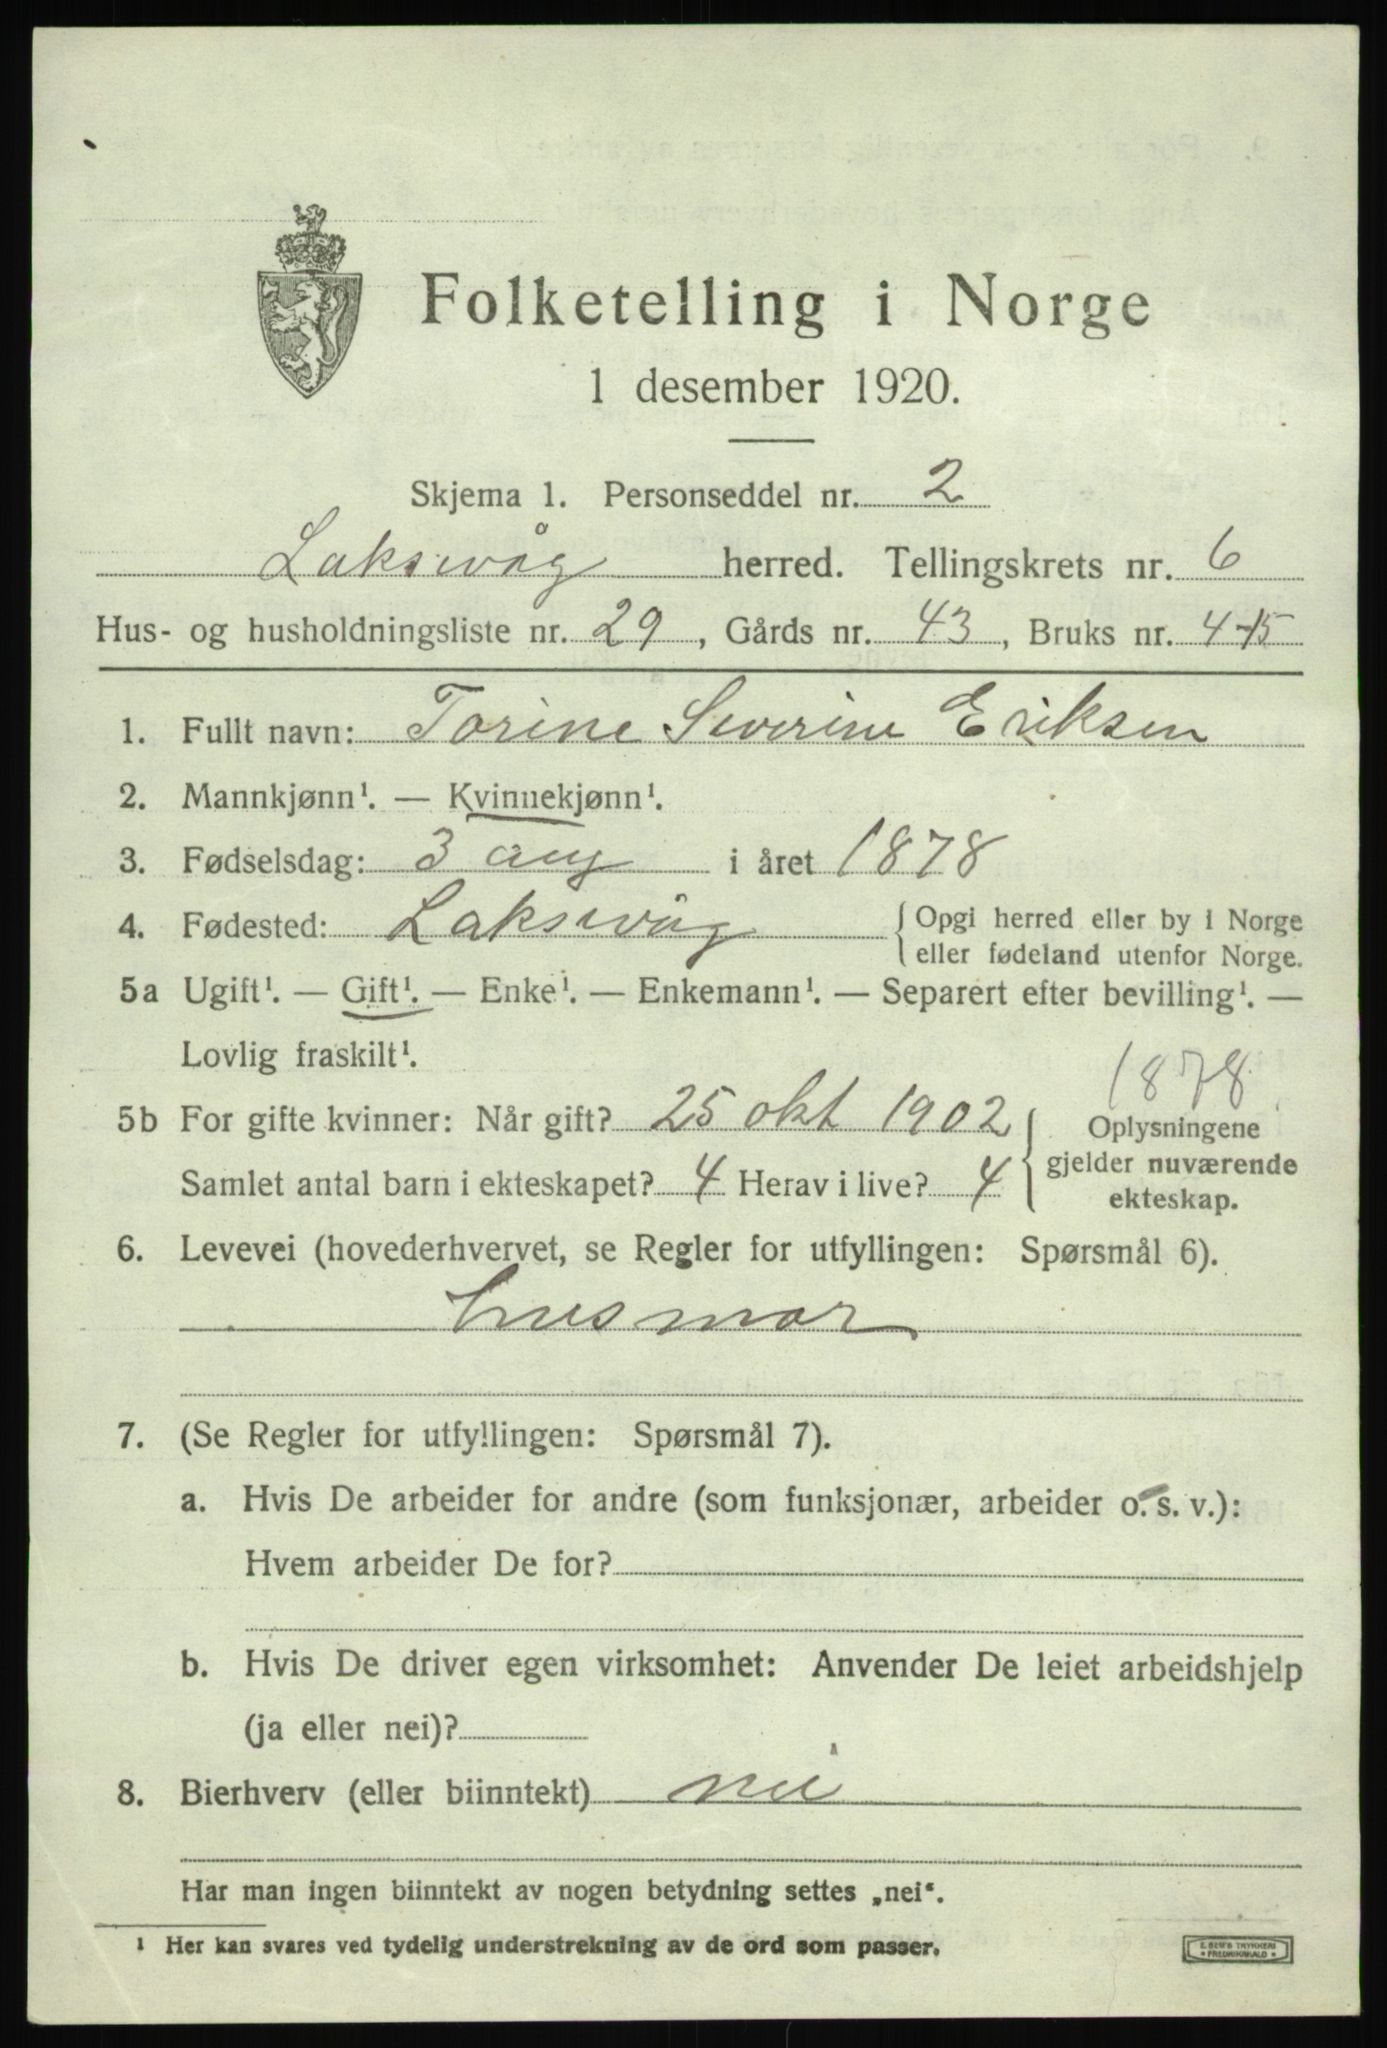 Folketelling i Norge
1 desember 1920.
Skjema 1. Personseddel nr. 2
Laksevåg herred. Tellingskrets nr. 6
Hus- og husholdningsliste nr. 29, Gårds nr. 43, Bruks nr. 4-15
1. Fullt navn: Torine Severine Eriksen
2. Mannkjønn¹. — Kvinnekjønn¹.
3. Fødselsdag: 3 aug i året 1878
4. Fødested: Laksevåg { Opgi herred eller by i Norge
eller fødeland utenfor Norge.
5a Ugift¹. — Gift¹. — Enke¹. — Enkemann¹. — Separert efter bevilling¹. —
Lovlig fraskilt¹.
1878
5b For gifte kvinner: Når gift? 25 okt 1902 Oplysningene
gjelder nuværende
Samlet antal barn i ekteskapet? 4 Herav i live? 4 ekteskap.
6. Levevei (hovederhvervet, se Regler for utfyllingen: Spørsmål 6).
husmor
7. (Se Regler for utfyllingen: Spørsmål 7).
a. Hvis De arbeider for andre (som funksjonær, arbeider o. s. v.):
Hvem arbeider De for?
b. Hvis De driver egen virksomhet: Anvender De leiet arbeidshjelp
(ja eller nei)?
8. Bierhverv (eller biinntekt) nei
Har man ingen biinntekt av nogen betydning settes „nei“.
¹ Her kan svares ved tydelig understrekning av de ord som passer.
E. SEM'S TRYKKERI
FREDRIKSHALD